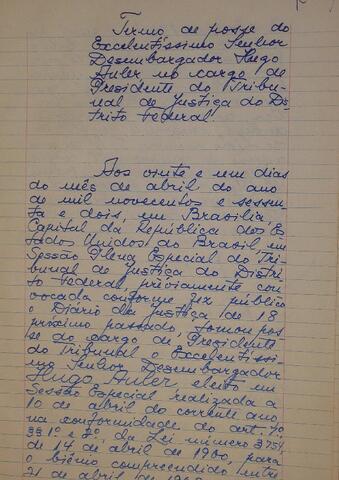 Termo de posse do
Excelentíssimo Senhor
Desembargador Hugo
Auler no cargo de
Presidente do Tribu-
nal de Justiça do Dis-
trito Federal
Aos vinte e um dias
do mês de abril do ano
de mil novecentos e sessen-
ta e dois, em Brasília
Capital da República dos Es-
tados Unidos do Brasil, em
Sessão Plena Especial do Tri-
bunal de Justiça do Distri-
to Federal previamente con-
vocada conforme fez público
o Diário da Justiça de 18
próximo passado, tomou pos-
se do cargo de Presidente
do Tribunal o Excelentíssi-
mo Senhor Desembargador
Hugo Auler, eleito em
Sessão Especial realizada a
10 de abril do corrente ano,
na conformidade do art.
§§ 1º e 2º, da Lei número 3754
de 14 de abril de 1960, para
o biênio compreendido entre
21 de abril de